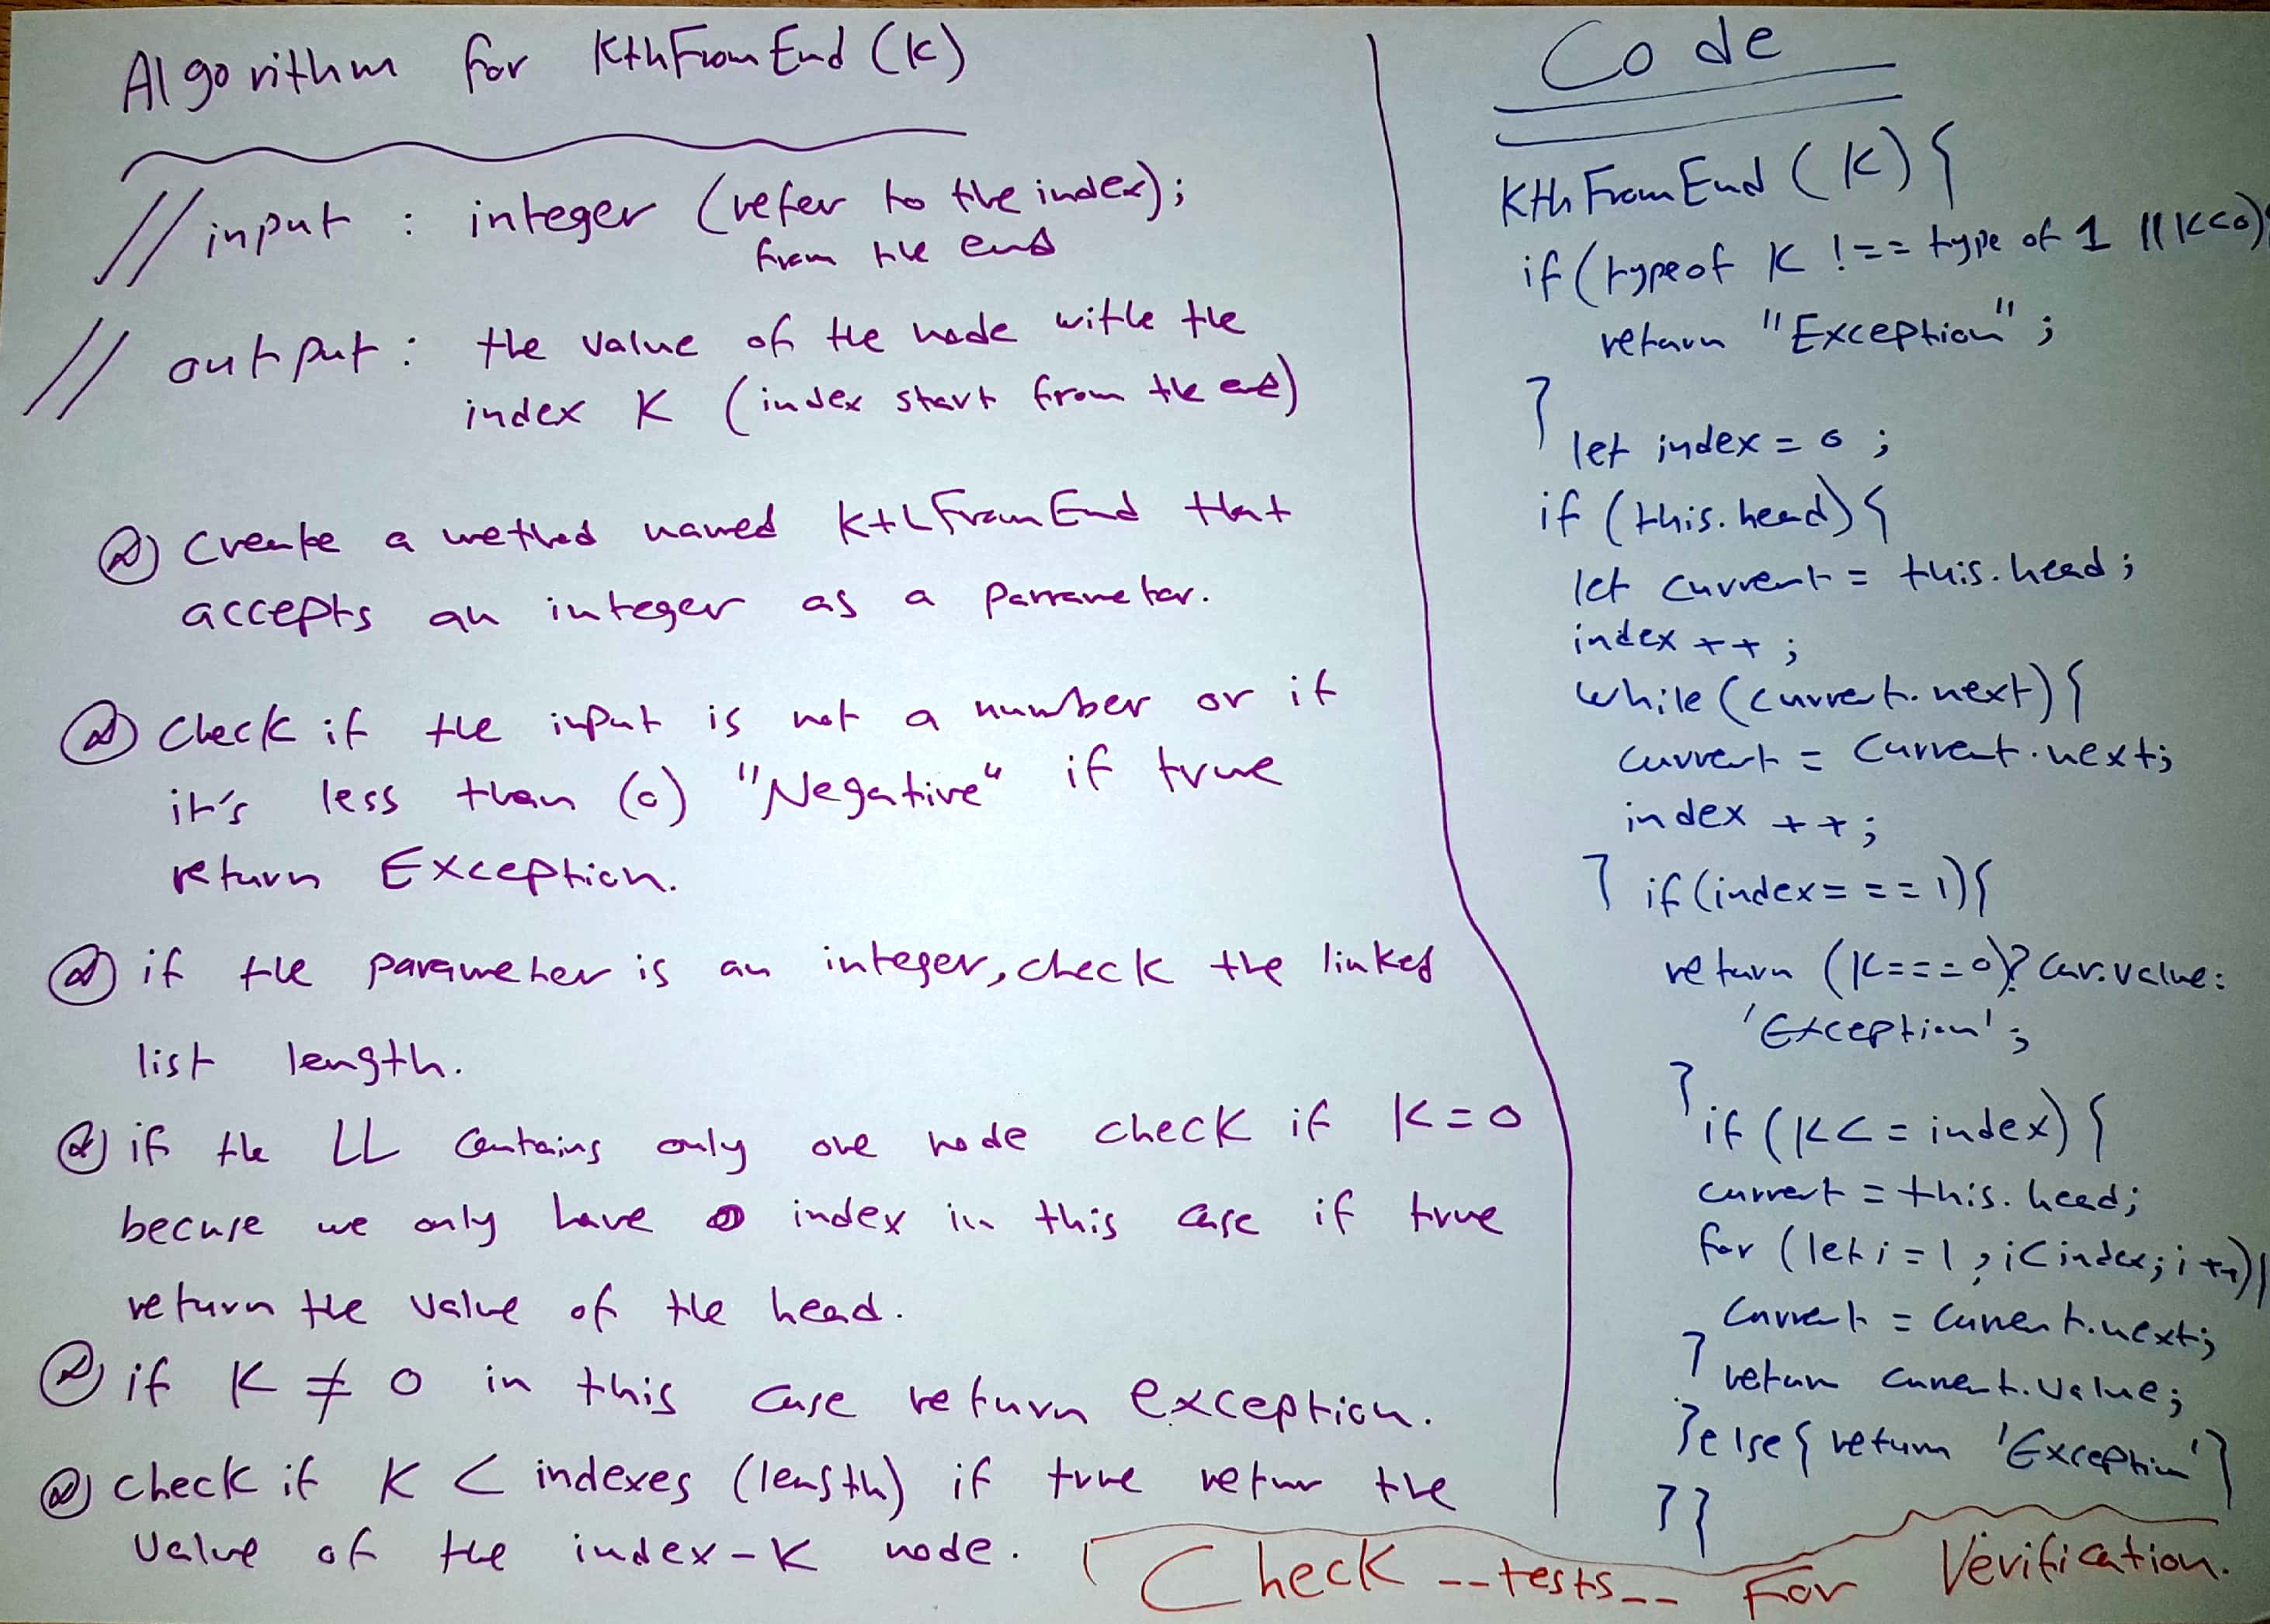 Algorithm for KthFromEnd (K)
// input : integer (refer to the index);
from the end
// output : the value of the node withe the
index K (index start from the end)
Create a method named KthFromEnd that
accepts an integer as a parrameter.
Check if the input is not a number or if
it's less than (0) "Negative" if true
return Exception.
if the parameter is an integer, check the linked
list length.
if the LL Contains only one node check if K = 0
becuse we only have 0 index in this case if true
return the value of the head.
if K ≠ 0 in this case return exception.
check if K < indexes (length) if true retur the
Value of the index - K node.
Code
KthFromEnd (K) {
if (typeof K !== type of 1 || K<0){
return "Exception" ;
}
let index = 0 ;
if (this.head) {
let current = this.head ;
index ++ ;
while (current.next) {
current = current.next;
index ++ ;
} if (index = == 1) {
return (K===0)? cur.value:
'Exception' ;
}
if (K <= index) {
current = this.head;
for (let i = 1 ; i < index; i ++){
current = current.next;
} return current.value;
} else { return 'Exception' }
} }
Check __tests__ For Verification.